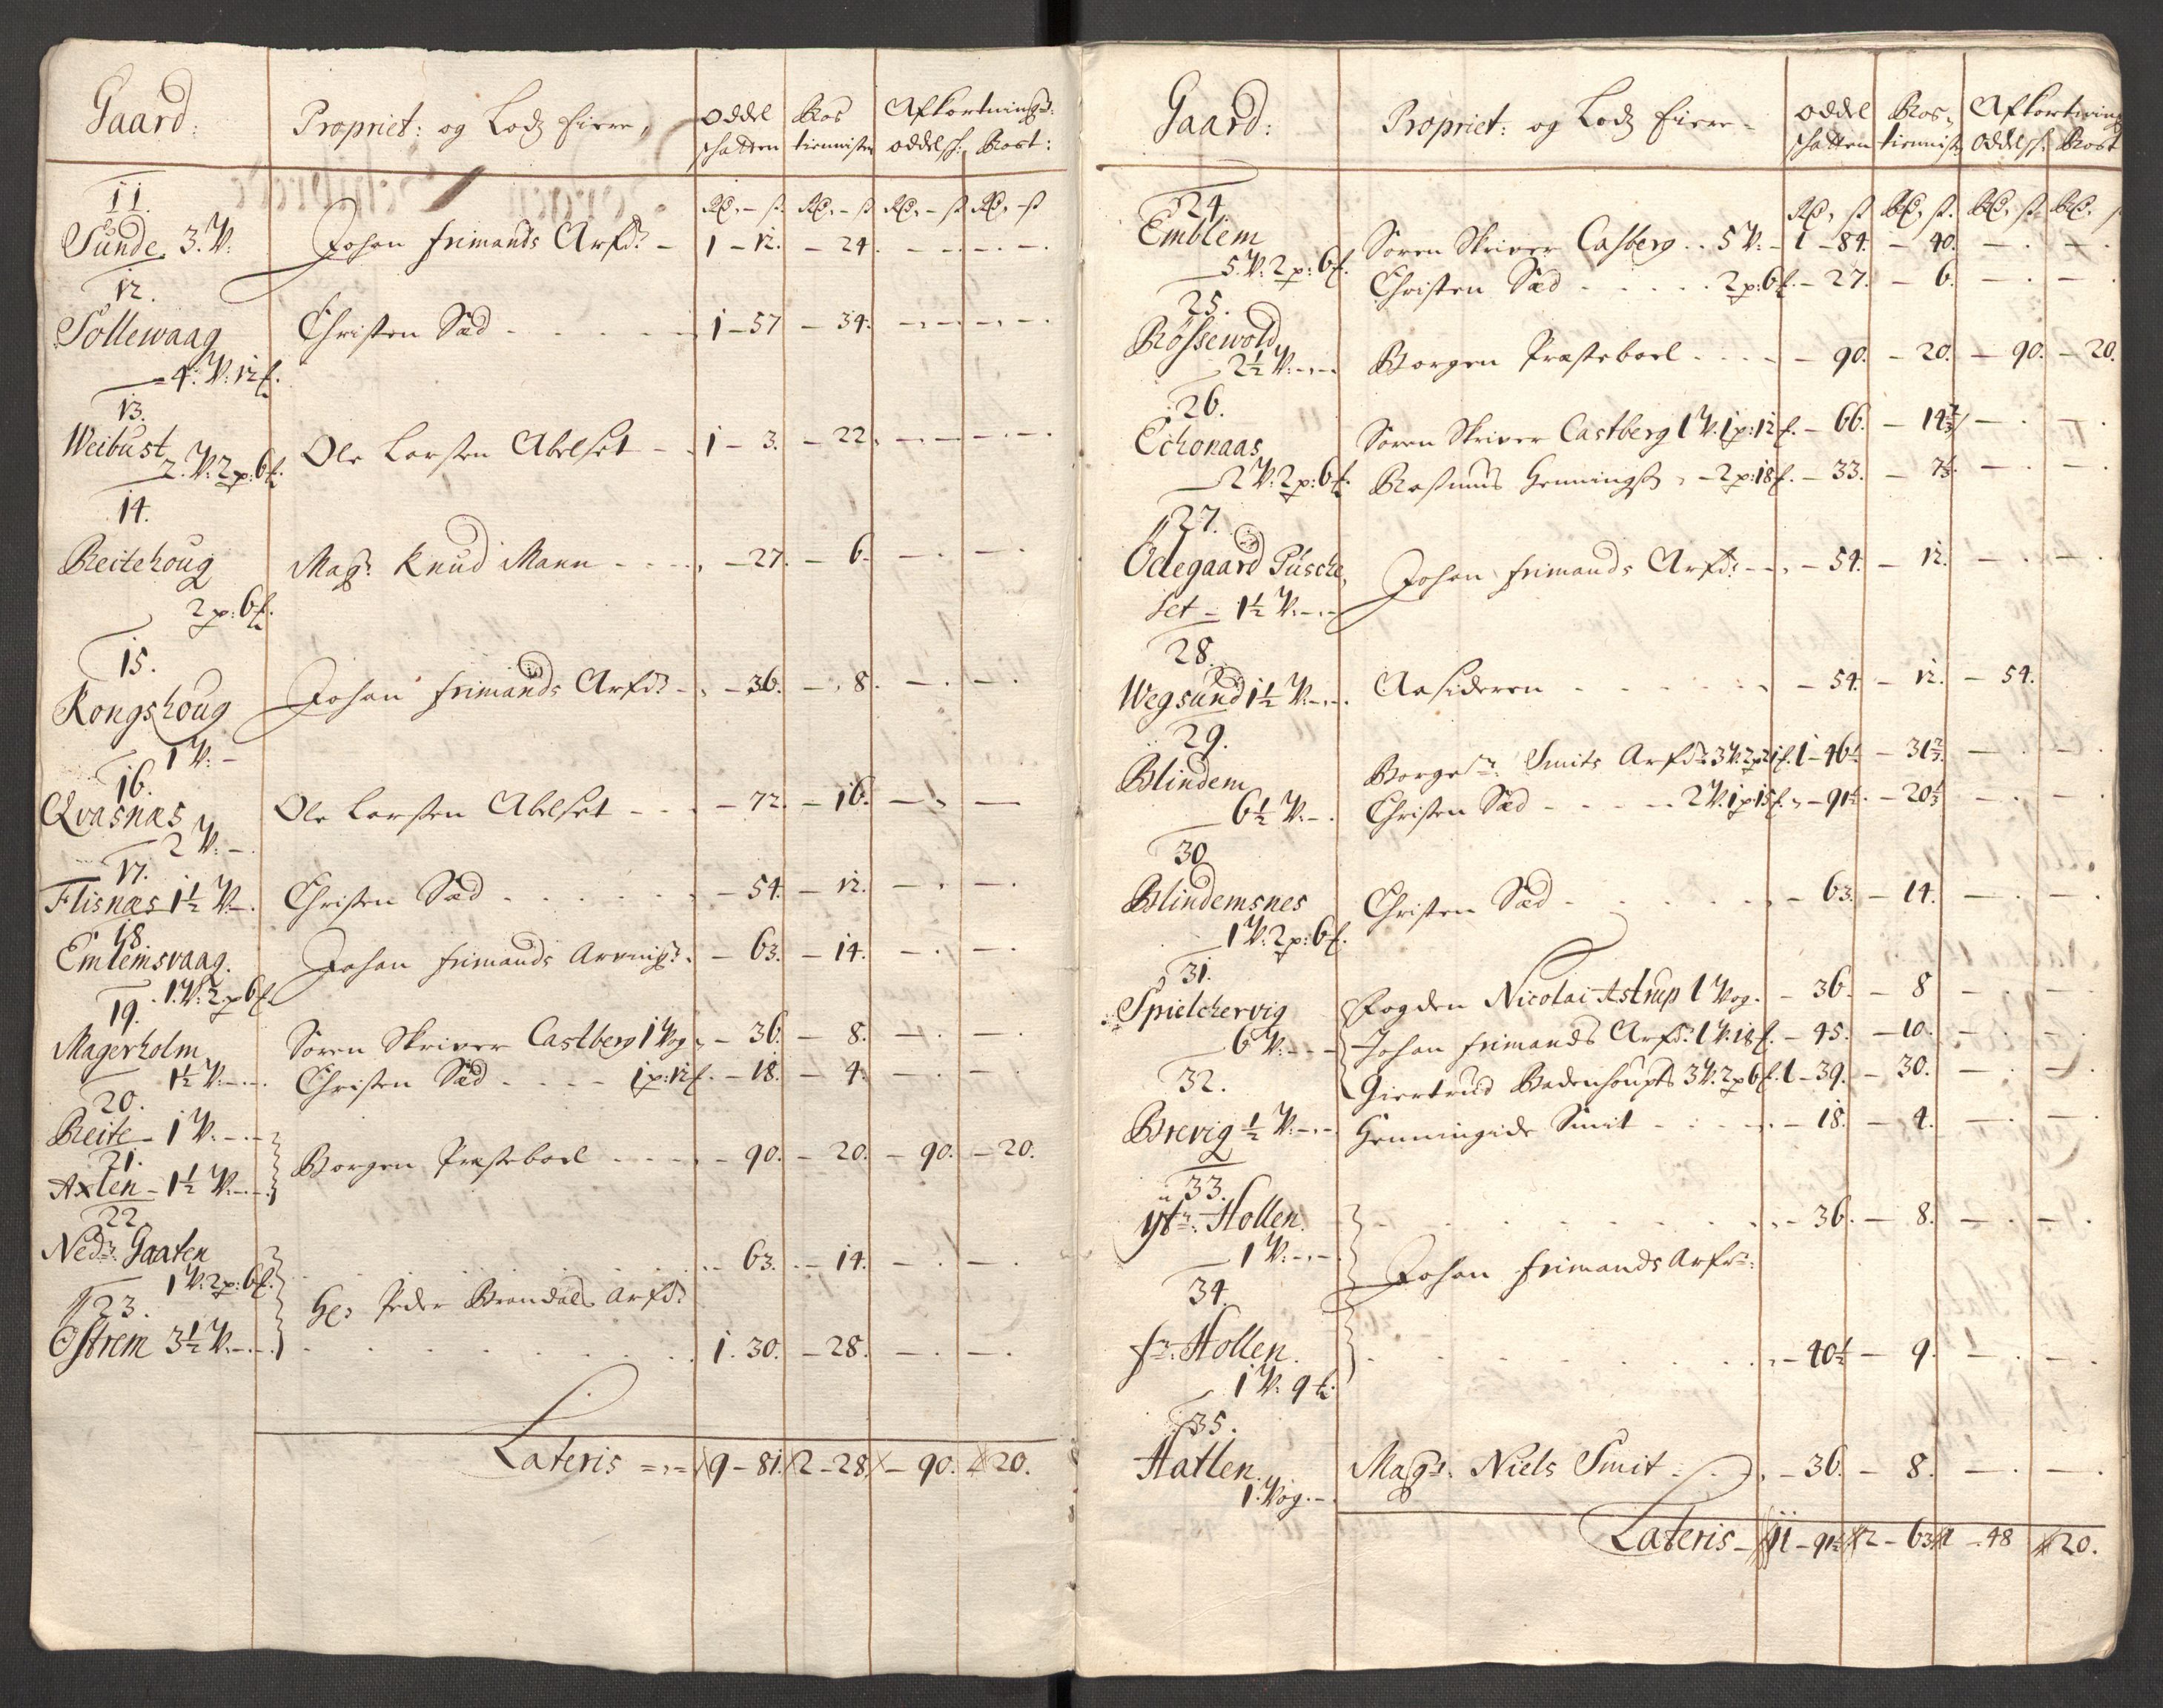 Gaard: Propriet: og Lodz Eiere, Oddel schatten Ros tienniste Afkortning: oddelsch: Rost:
Rd. – ß. Rd. – ß Rd. – ß Rd. – ß
11.
Sunde. 3. V: Johan frimands Arfv: – 1 – 12. – 24. – . – . – . – .
12.
Sollewaag Christen Sæd – – – – 1 – 57 – 34. – . – . – . – .
4. V: 12 f.
13.
Weibust Ole Larsen Abelset – 1 – 3. – 22. – . – . – . – .
2. V. 2 p: 6 f.
14.
Reitehoug Mag: Knud Mann – – – 27. – 6. – . – .
2 p: 6 f.
15.
Kongshoug Johan frimands Arfv: – – 36. – 8. – . – .
1 V: –
16.
Qvasnæs Ole Larsen Abelset – – – 72. – 16. – . –
2 V: –
17.
Flisnæs 1½ V. – . Christen Sæd – – – – 54. – 12. – . – .
18
Emlemsvaag. Johan frimands Arving: – 63. – 14. – . – .
1. V: 2 p 6 f.
19.
Magerholm Soren Skriver Castberg 1 Vog – 36. – 8. – . – .
1½ V: – . Christen Sæd – – – 1 p: 12 f. – 18. – 4. – . – .
20.
Reite – 1 V. – . –
21. Borgen Præsteboel – – – 90. – 20. – 90. – 20.
Axlen – 1½ V. – . –
22.
Nedr: Gaaten – 63. – 14. – . – .
1 V: 2 p: 6 f.
23. Hr: Peder Brandals Arfv:
Østrem 3½ V. – . 1. 30. – 28. – . – .
Lateris = 9 – 81. 2 – 28 – 90. 20.
Gaard: Propriet: og Lodz Eiere – Oddel schatten Ros tienniste Afkortning Oddelsch: Rost
Rd. ß Rd. ß. Rd. ß. Rd. ß
24
Emblem Soren Skriver Casberg . . 5 V: – 1 – 84. – 40. – . – .
5. V: 2 p: 6 f. Christen Sæd – – – – 2 p: 6 f. – 27. – 6. – . – .
25.
Røssewold
2½ V: – . – Borgen Præsteboel – – – – 90. – 20. – 90. – 20.
26.
Echonaas Soren Skriver Castberg 1 V. 1 p: 12 f. – 66. – 14⅔ – . – .
2 V: 2 p: 6 f. Rasmus Hennings – 2 p: 18 f. – 33. – 7⅓. – . – .
27.
Ødegaard Pusche, Johan frimands Arfv: – – 54. – 12. – . – .
set – 1½ V. – . –
28.
Wegsund 1½ V: – . Aasideren – – – – – 54. – 12. – 54.
29.
Blindem Borgmr: Smits Arfv: 3 V. 2 p 21 f. 1 – 46½ – 31⅔. – . – .
6½ V: – . Christen Sæd – – – 2 V. 1 p 15 f. – 91½. – 20⅓ – . – .
30
Blindemsnes Christen Sæd – – – – – 63. – 14. – . – .
1 V: 2 p: 6 f.
31.
Spielchervig Fogden Nicolai Astrup 1 Vog. – 36. – 8 – . – .
6 V: – . – Johan frimands Arfv: 1 V. 18 f. – 45. – 10. – . – .
Giertrud Badenhoupts 3 V. 2 p 6 f. 1 – 39. – 30. – . – .
32.
Brevig ½ V: – . Henningide Smit – – – – 18. – 4. – . – .
33.
ytr: Hollen. – – – – – 36. – 8. – . – .
1 V: – . –
Johan frimands Arfv:
34.
fr: Hollen. – – – – – 40½ – 9. – . – .
1 V: 9 f.
35.
Hatlen. Mag: Niels Smit – . – 36. – 8. – . – .
1. Vog. –
Lateris – 11 – 91½ 2 – 63 1 – 48 20.